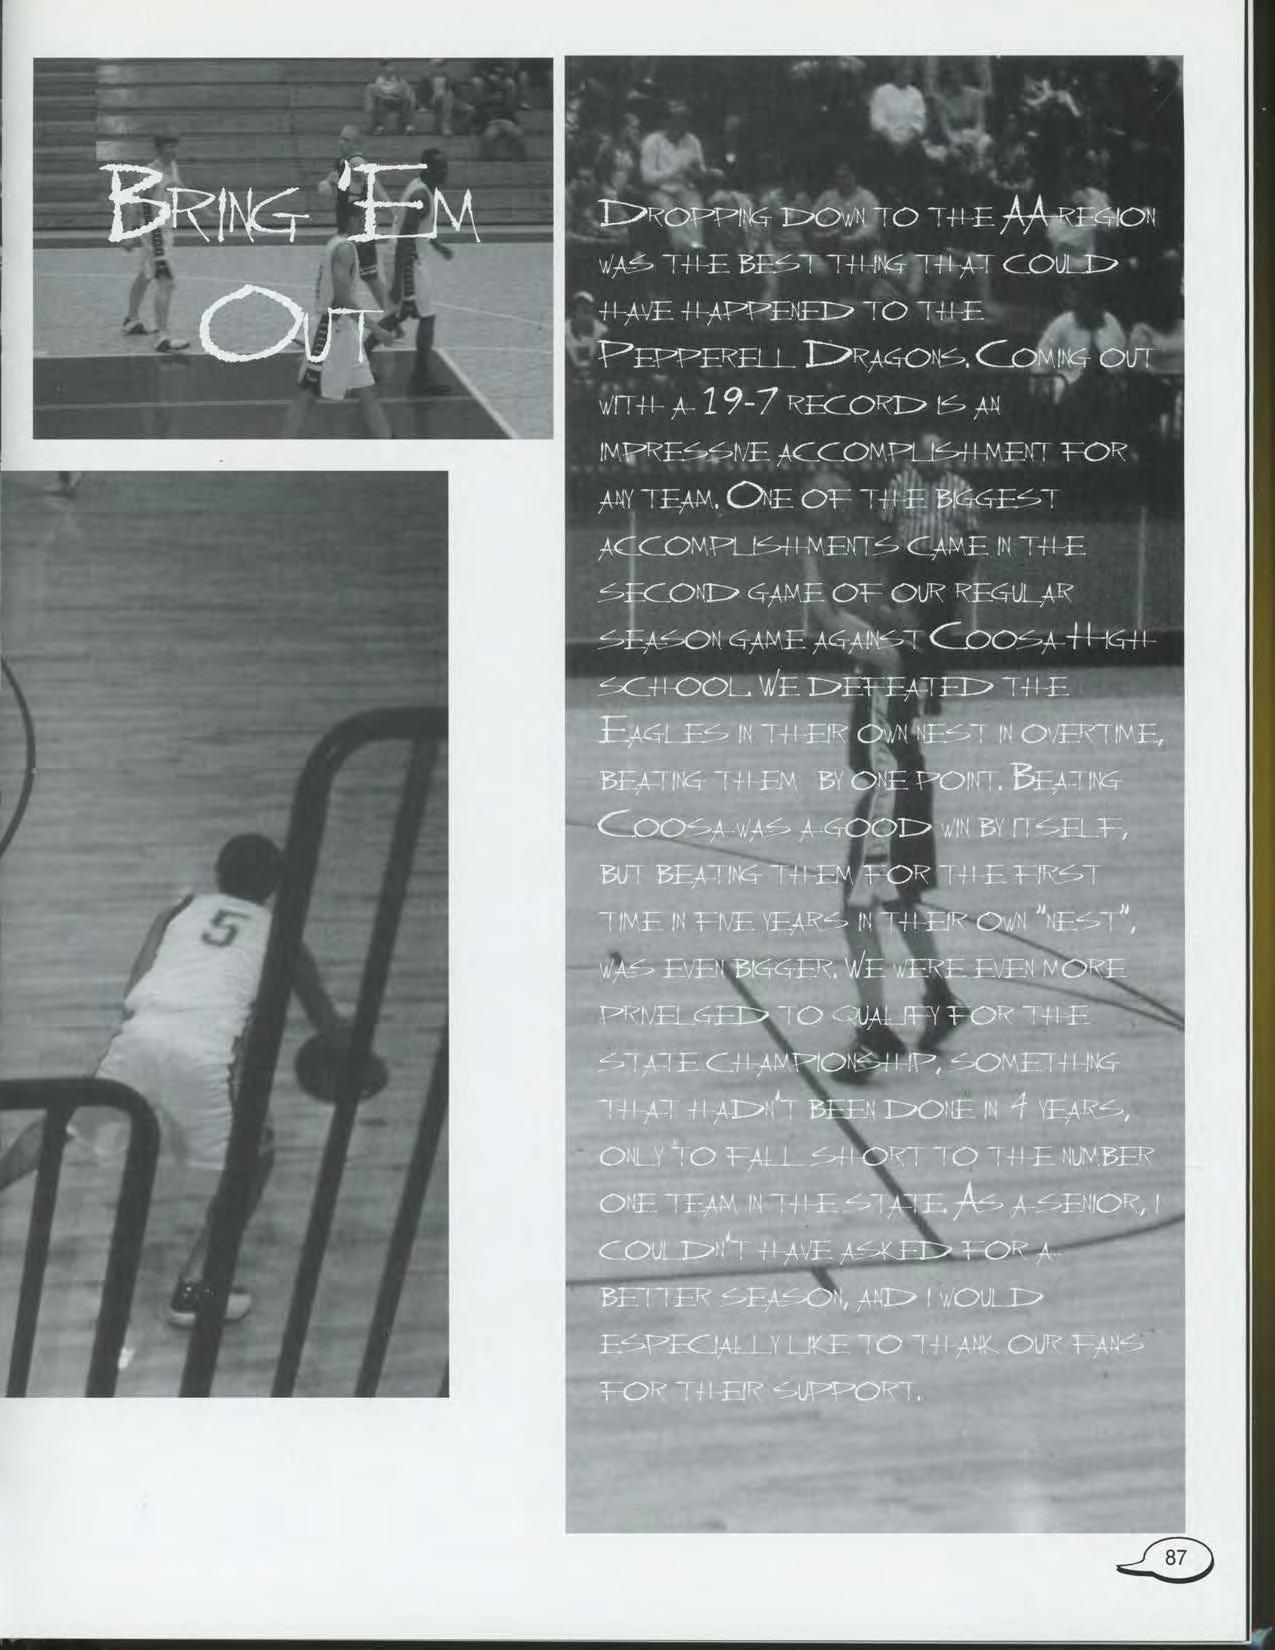 Bring 'Em
Out
Dropping down to the AA region
was the best thing that could
have happened to the
Pepperell Dragons. Coming out
with a 19-7 record is an
impressive accomplishment for
any team. One of the biggest
accomplishments came in the
second game of our regular
season game against Coosa High
school. We defeated the
Eagles in their own nest in overtime,
beating them by one point. Beating
Coosa was a good win by itself,
but beating them for the first
time in five years in their own "nest",
was even bigger. We were even more
privelged to qualify for the
state championship, something
that hadn't been done in 4 years,
only to fall short to the number
one team in the state. As a senior, I
couldn't have asked for a
better season, and I would
especially like to thank our fans
for their support.
5
87